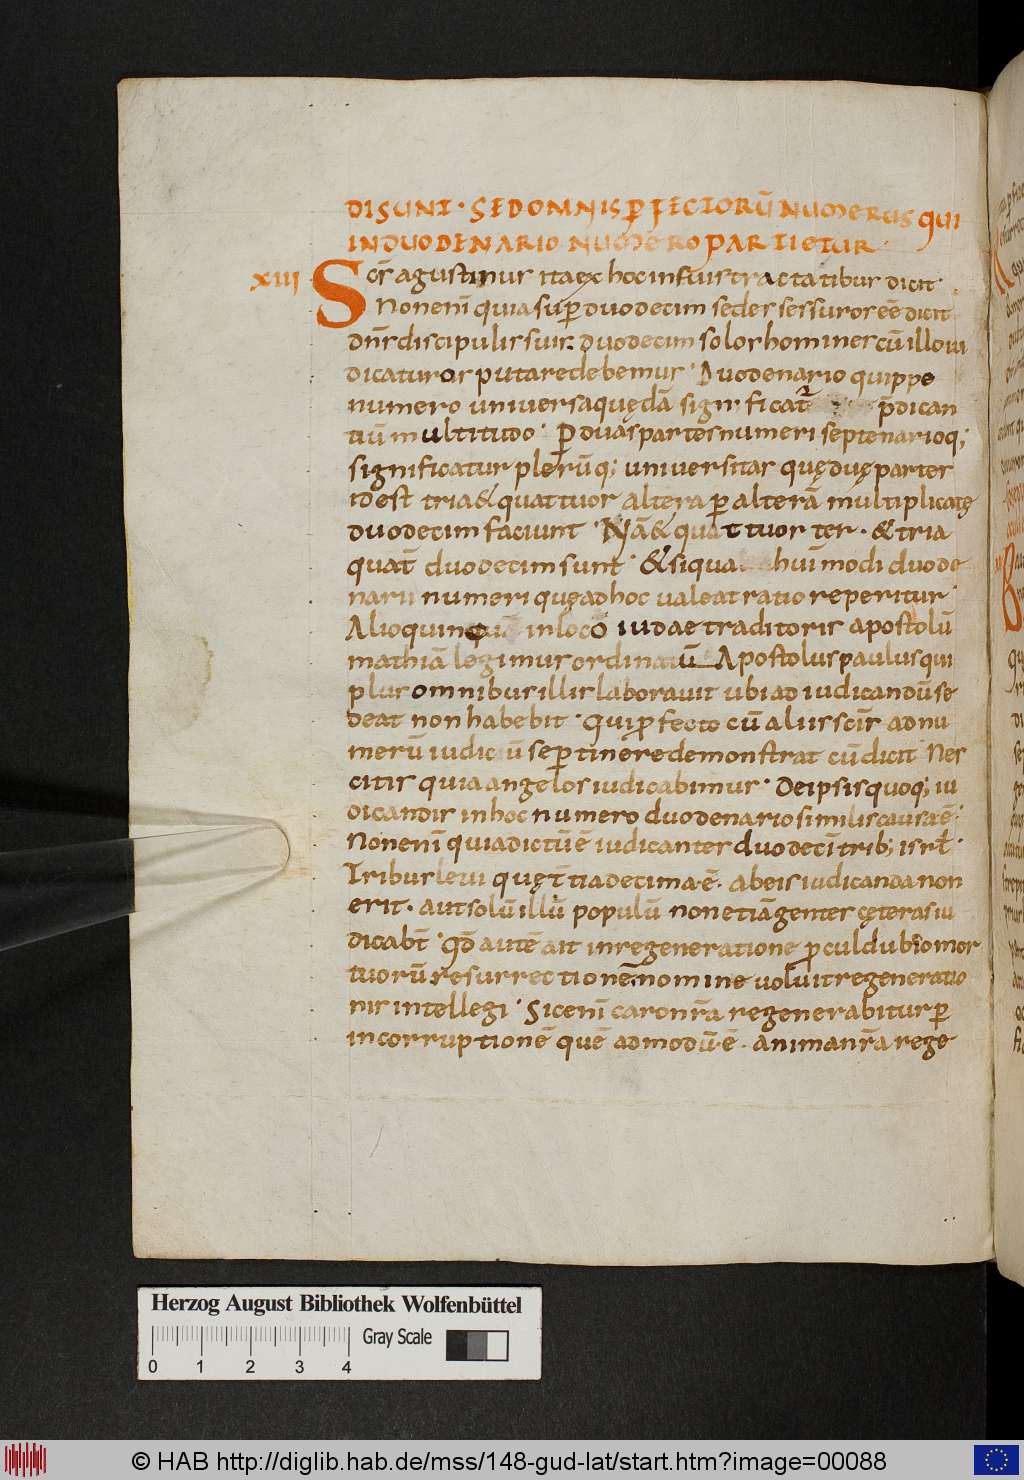 DISUNT · SED OMNIS P̄FECTORŪ NUMERUS QUI
IN DUODENARIO NUMERO PARTIETUR
XIII Sc̄s agustinus ita ex hoc in suis tractatibus dicit
Non enī quia sup̄ duodecim sedes sessuros eē dicit
dn̄s discipulis suis duodecim solos homines cū illo iu
dicaturos putare debemus · Duodenario quippe
numero universa quędā significat̄ p̄dican
tiū multitudo · P̄ duas partes numeri septenario q;
significatur plerūq; universitas quę duę partes
id est tria & quattuor altera p̄ alterā multiplicatę
duodecim faciunt · Nā & quattuor ter · & tria
quat̄ duodecim sunt · & si qua hui modi duode
narii numeri quę ad hoc valeat ratio reperitur ·
Alioquin in loco iudae traditoris apostolū
mathiā legimus ordinatū Apostolus paulus qui
plus omnibus illis laboravit ubi ad iudicandū se
deat non habebit · qui p̄fecto cū aliis sc̄is ad nu
merū iudicū se p̄tinere demonstrat cū dicit Nes
citis quia angelos iudicabimus · De ipsis quoq; iu
dicandis in hoc numero duodenario similis causa ē ·
Non enī quia dictū ē iudicantes duodecī trib; isrł ·
Tribus levi quę t̄tia decima · ē · ab eis iudicanda non
erit · aut solū illū populū non etiā gentes cęteras iu
dicabt̄ · Qd̄ autē ait in regeneratione p̄cul dubio mor
tuorū resurrectionē nomine voluit regeneratio
nis intellegi · Sic enī caro nr̄a regenerabitur p̄
incorruptionē quē admodū · ē · anima nr̄a rege
Herzog August Bibliothek Wolfenbüttel
Gray Scale
0 1 2 3 4
© HAB http://diglib.hab.de/mss/148-gud-lat/start.htm?image=00088